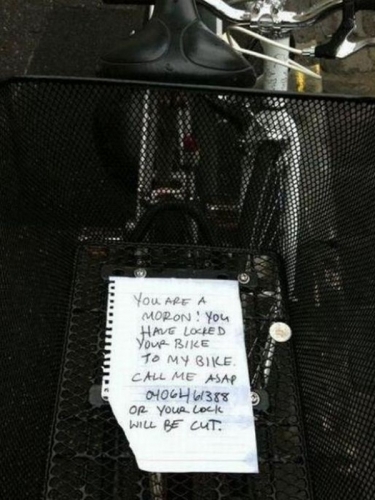 YOU ARE A
MORON! YOU
HAVE LOCKED
YOUR BIKE
TO MY BIKE.
CALL ME ASAP
OR YOUR LOCK
WILL BE CUT.